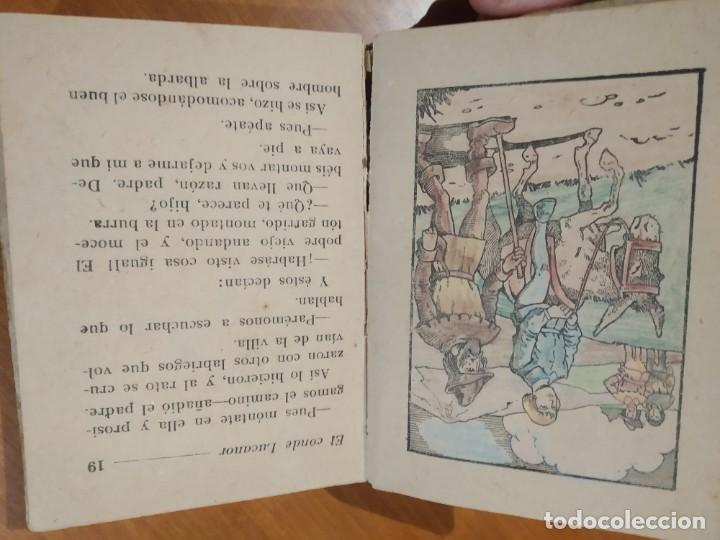 El conde Lucanor ——— 19
—Pues móntate en ella y prosi-
gamos el camino—añadió el padre.
Así lo hicieron, y al rato se cru-
zaron con otros labriegos que vol-
vían de la villa.
—Parémonos a escuchar lo que
hablan.
Y éstos decían:
—¡Habráse visto cosa igual! El
pobre viejo, andando, y el moce-
tón gafrido, montado en la burra.
—¿Qué te parece, hijo?
—Que llevan razón, padre. De-
béis montar vos y dejarme a mí que
vaya a pie.
—Pues apéate.
Así se hizo, acomodándose el buen
hombre sobre la albarda.
todocoleccion
todocoleccion.net